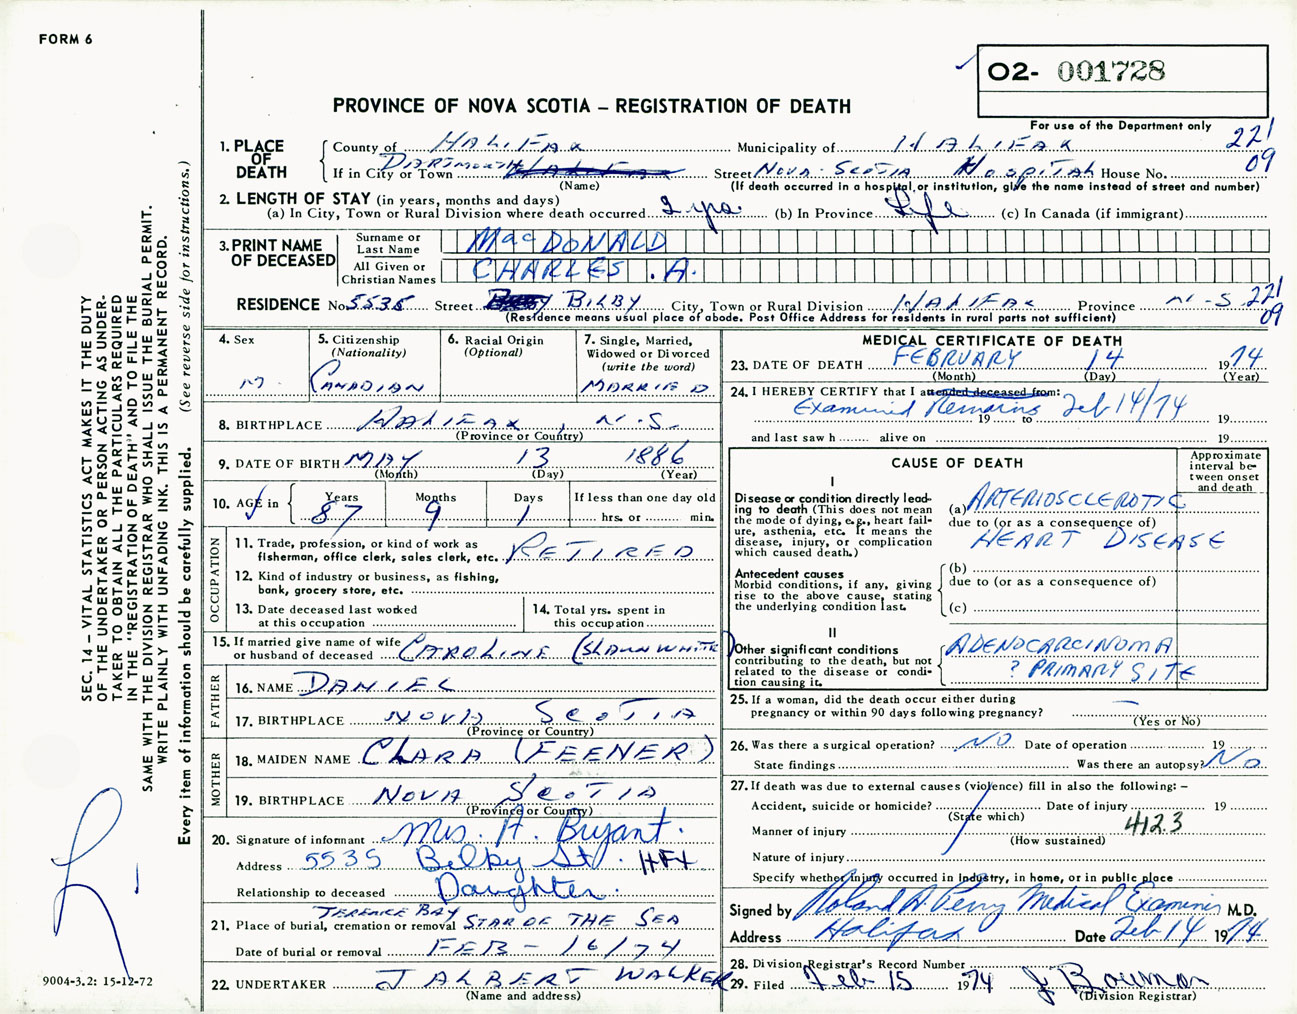 FORM 6
O2- 001728
PROVINCE OF NOVA SCOTIA – REGISTRATION OF DEATH
For use of the Department only
221
09
1. PLACE OF DEATH
County of HALIFAX Municipality of HALIFAX
If in City or Town DARTMOUTH Street NOVA SCOTIA HOSPITAL House No.
(Name) (If death occurred in a hospital or institution, give the name instead of street and number)
2. LENGTH OF STAY (in years, months and days)
(a) In City, Town or Rural Division where death occurred 2 yrs. (b) In Province Life (c) In Canada (if immigrant)
3. PRINT NAME OF DECEASED
Surname or Last Name MacDONALD
All Given or Christian Names CHARLES .A.
RESIDENCE No. 5535 Street BILBY City, Town or Rural Division HALIFAX Province N.S 221
09
(Residence means usual place of abode. Post Office Address for residents in rural parts not sufficient)
4. Sex M.
5. Citizenship (Nationality) CANADIAN
6. Racial Origin (Optional)
7. Single, Married, Widowed or Divorced (write the word) MARRIED
8. BIRTHPLACE HALIFAX, N.S.
(Province or Country)
9. DATE OF BIRTH MAY 13 1886
(Month) (Day) (Year)
10. AGE in Years 87 Months 9 Days 1 If less than one day old
hrs. or min.
OCCUPATION
11. Trade, profession, or kind of work as fisherman, office clerk, sales clerk, etc. RETIRED
12. Kind of industry or business, as fishing, bank, grocery store, etc.
13. Date deceased last worked at this occupation
14. Total yrs. spent in this occupation
15. If married give name of wife or husband of deceased CAROLINE (SLAUNWHITE)
FATHER
16. NAME DANIEL
17. BIRTHPLACE NOVA SCOTIA
(Province or Country)
MOTHER
18. MAIDEN NAME CLARA (FEENER)
19. BIRTHPLACE NOVA SCOTIA
(Province or Country)
20. Signature of informant Mrs. A. Bryant.
Address 5535 Bilby St. HFX
Relationship to deceased Daughter.
TERENCE BAY
21. Place of burial, cremation or removal STAR OF THE SEA
Date of burial or removal FEB - 16/74
22. UNDERTAKER J ALBERT WALKER
(Name and address)
MEDICAL CERTIFICATE OF DEATH
23. DATE OF DEATH FEBRUARY 14 1974
(Month) (Day) (Year)
24. I HEREBY CERTIFY that I attended deceased from:
Examined Remains Feb 14/74 19
19 to
and last saw h alive on 19
CAUSE OF DEATH
Approximate interval between onset and death
I
Disease or condition directly leading to death (This does not mean the mode of dying, e.g., heart failure, asthenia, etc. It means the disease, injury, or complication which caused death.)
(a) ARTERIOSCLEROTIC
due to (or as a consequence of)
HEART DISEASE
Antecedent causes
Morbid conditions, if any, giving rise to the above cause, stating the underlying condition last.
(b)
due to (or as a consequence of)
(c)
II
Other significant conditions
contributing to the death, but not related to the disease or condition causing it.
ADENOCARCINOMA
? PRIMARY SITE
25. If a woman, did the death occur either during pregnancy or within 90 days following pregnancy? —
(Yes or No)
26. Was there a surgical operation? NO Date of operation 19
State findings Was there an autopsy? No
27. If death was due to external causes (violence) fill in also the following: –
Accident, suicide or homicide? Date of injury 19
(State which)
Manner of injury 4123
(How sustained)
Nature of injury
Specify whether injury occurred in industry, in home, or in public place
Signed by Roland A. Perry Medical Examiner M.D.
Address Halifax Date Feb 14 1974
28. Division Registrar's Record Number
29. Filed Feb 15 1974 J Bowman
(Division Registrar)
SEC. 14 – VITAL STATISTICS ACT MAKES IT THE DUTY
OF THE UNDERTAKER OR PERSON ACTING AS UNDER-
TAKER TO OBTAIN ALL THE PARTICULARS REQUIRED
IN THE "REGISTRATION OF DEATH" AND TO FILE THE
SAME WITH THE DIVISION REGISTRAR WHO SHALL ISSUE THE BURIAL PERMIT.
WRITE PLAINLY WITH UNFADING INK. THIS IS A PERMANENT RECORD.
Every item of information should be carefully supplied. (See reverse side for instructions.)
9004-3.2: 15-12-72